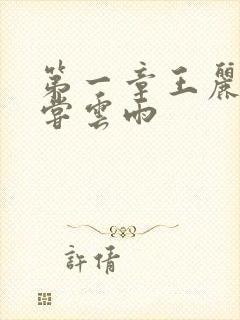 第一章王麗
嘗雲雨
許情